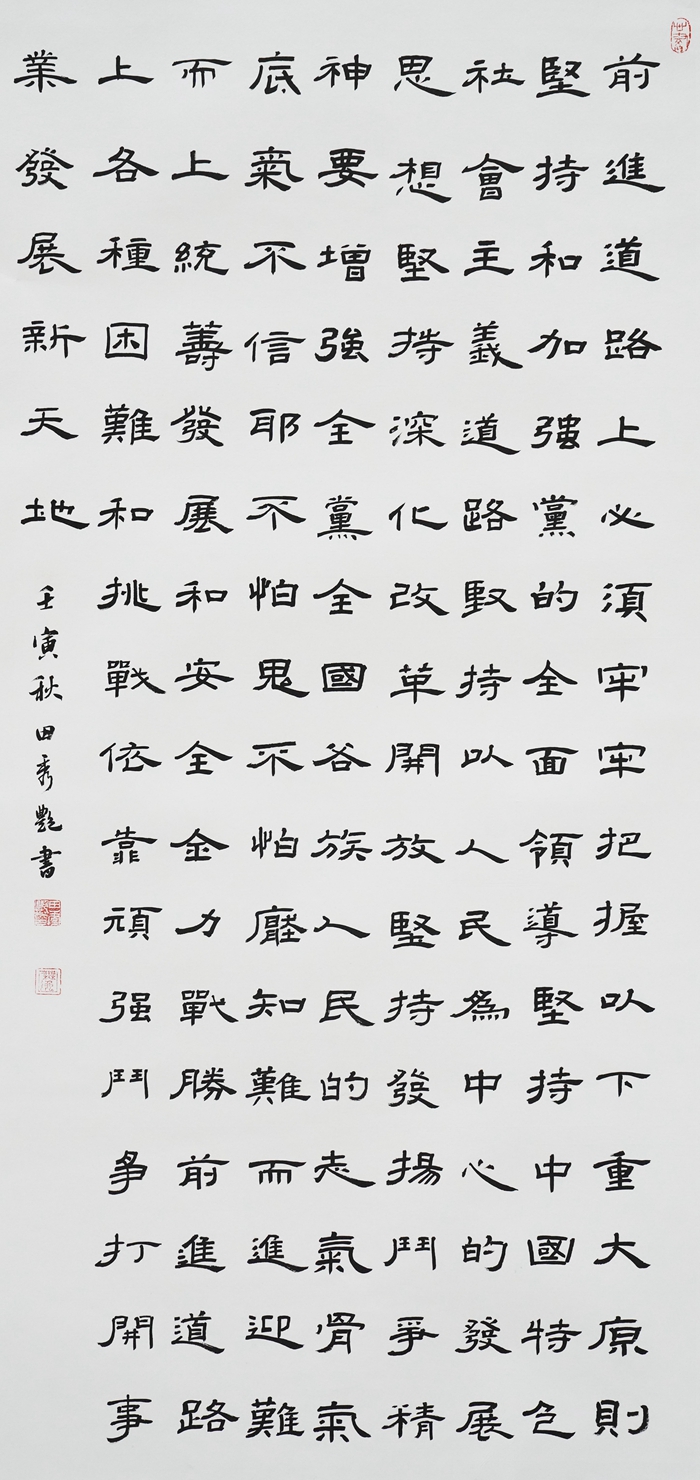 前進道路上必須牢牢把握以下重大原則
堅持和加強黨的全面領導堅持中國特色
社會主義道路堅持以人民為中心的發展
思想堅持深化改革開放堅持發揚鬥爭精
神要增強全黨全國各族人民的志氣骨氣
底氣不信耶不怕鬼不怕壓知難而進迎難
而上統籌發展和安全全力戰勝前進道路
上各種困難和挑戰依靠頑强鬥爭打開事
業發展新天地
壬寅秋田秀艷書